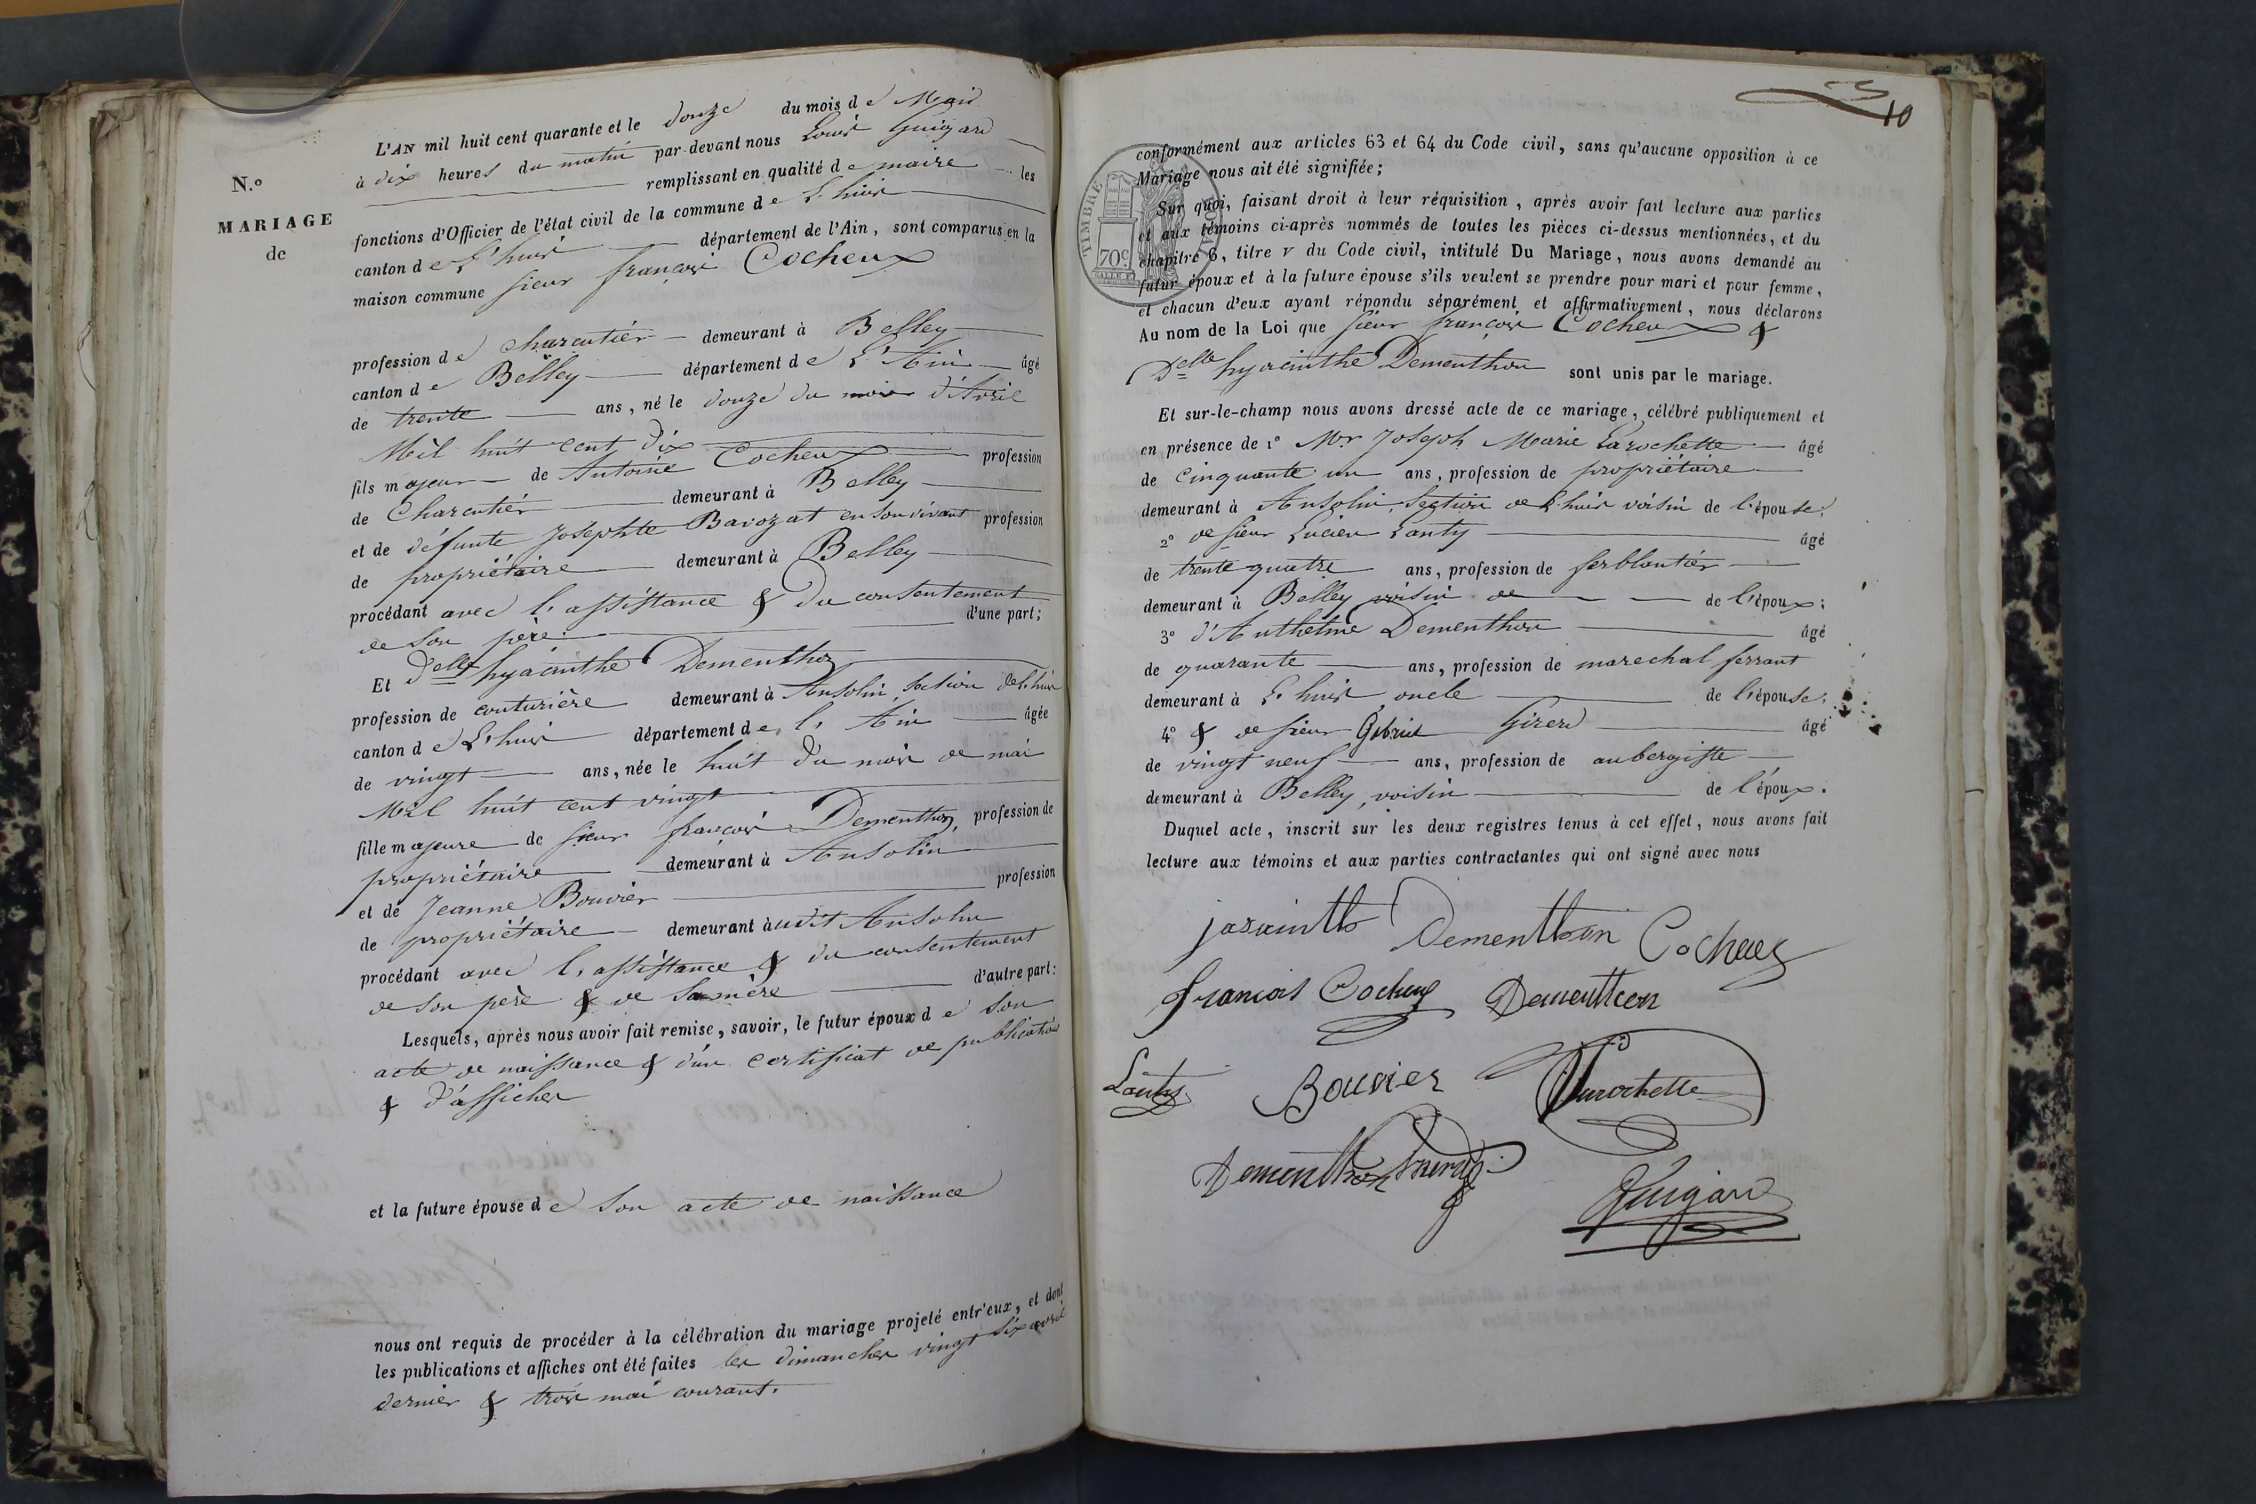 L'AN mil huit cent quarante et le douze du mois de Mai
à dix heures du matin par-devant nous Louis Guigard
remplissant en qualité de maire les
fonctions d'Officier de l'état civil de la commune de L'huis
canton de L'huis département de l'Ain, sont comparus en la
maison commune sieur françois Cocheux
N.o
MARIAGE
de
profession de charcutier demeurant à Belley
canton de Belley département de L'Ain âgé
de trente ans, né le douze du mois d'Avril
Mil huit cent dix
fils majeur de Antoine Cocheux profession
de Charcutier demeurant à Belley
et de défunte Josephte Bavozat en son vivant profession
de propriétaire demeurant à Belley
procédant avec l'assistance & du consentement
de son père d'une part;
Et Delle hyacinthe Dementhon
profession de couturière demeurant à Ansolin, section de L'huis
canton de L'huis département de L'Ain âgée
de vingt ans, née le huit du mois de mai
Mil huit cent vingt
fille majeure de sieur françois Dementhon, profession de
propriétaire demeurant à Ansolin
et de Jeanne Bouvier profession
de propriétaire demeurant à udit Ansolin
procédant avec l'assistance & du consentement
de son père & de sa mère d'autre part:
Lesquels, après nous avoir fait remise, savoir, le futur époux de son
acte de naissance & d'un certificat de publication
& d'affiches
et la future épouse de son acte de naissance
nous ont requis de procéder à la célébration du mariage projeté entr'eux, et dont
les publications et affiches ont été faites les dimanches vingt six avril
dernier & trois mai courant.
10
conformément aux articles 63 et 64 du Code civil, sans qu'aucune opposition à ce
Mariage nous ait été signifiée;
TIMBRE ROYAL
70c
Sur quoi, faisant droit à leur réquisition, après avoir fait lecture aux parties
et aux témoins ci-après nommés de toutes les pièces ci-dessus mentionnées, et du
chapitre 6, titre v du Code civil, intitulé Du Mariage, nous avons demandé au
futur époux et à la future épouse s'ils veulent se prendre pour mari et pour femme,
et chacun d'eux ayant répondu séparément et affirmativement, nous déclarons
Au nom de la Loi que sieur françois Cocheux &
Delle hyacinthe Dementhon sont unis par le mariage.
Et sur-le-champ nous avons dressé acte de ce mariage, célébré publiquement et
en présence de 1° Mr Joseph Marie Larochette âgé
de cinquante un ans, profession de propriétaire
demeurant à Ansolin, section de L'huis voisin de l'épouse;
2° de sieur Lucien Lanty âgé
de trente quatre ans, profession de ferblantier
demeurant à Belley voisin de de l'époux;
3° d'Anthelme Dementhon âgé
de quarante ans, profession de marechal ferrant
demeurant à L'huis oncle de l'épouse;
4° & de sieur Gabriel Girerd âgé
de vingt neuf ans, profession de aubergiste
demeurant à Belley, voisin de l'époux.
Duquel acte, inscrit sur les deux registres tenus à cet effet, nous avons fait
lecture aux témoins et aux parties contractantes qui ont signé avec nous
jasainth Dementhon Cocheux
françois Cocheux Dementhon
Lanty Bouvier Larochette
Dementhon Girerd
Guigard